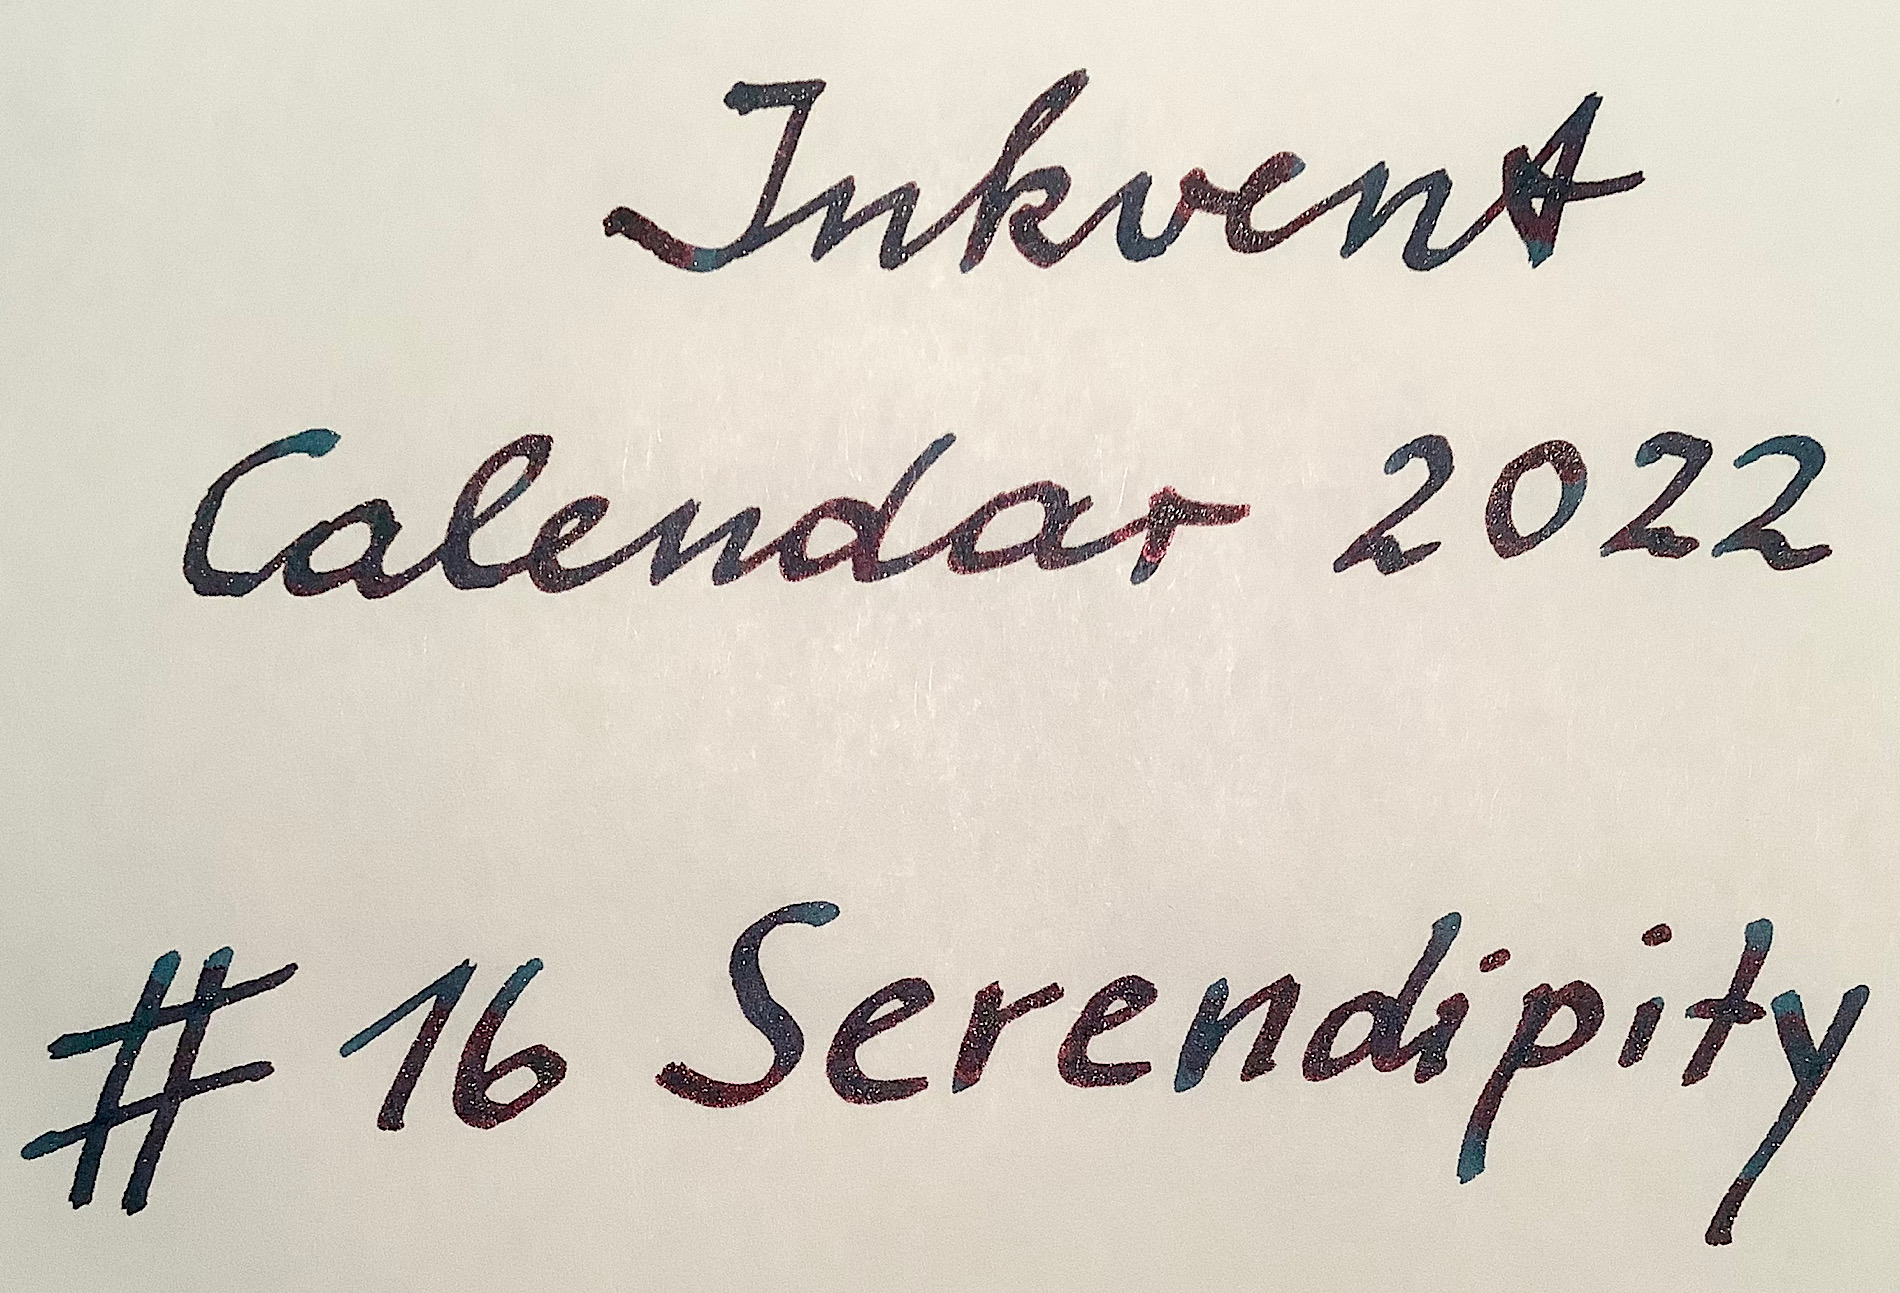 Inkvent
Calendar 2022
# 16 Serendipity